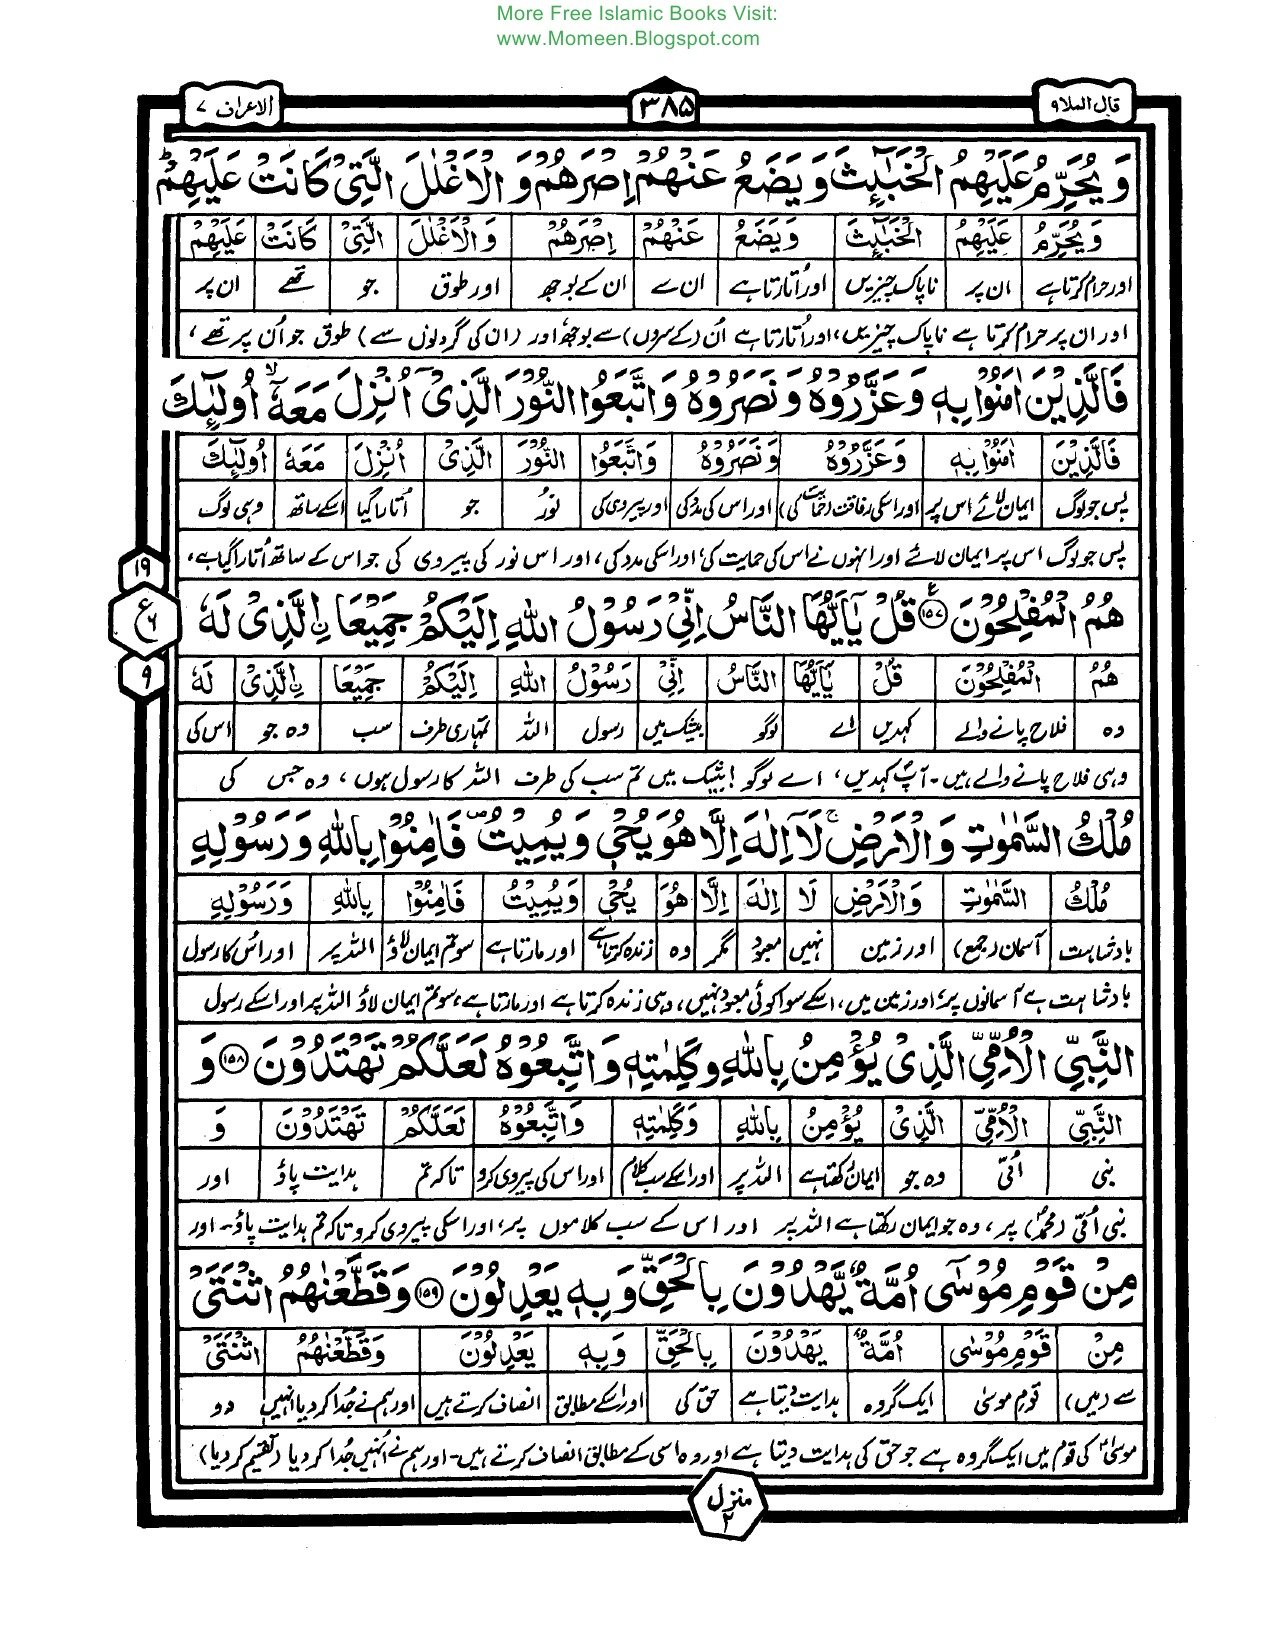 More Free Islamic Books Visit:
www.Momeen.Blogspot.com
قال الملا ۹
۳۸۵
الاعراف ۷
وَيُحَرِّمُ عَلَيْهِمُ الْخَبٰٓئِثَ وَيَضَعُ عَنْهُمْ اِصْرَهُمْ وَالْاَغْلٰلَ الَّتِىْ كَانَتْ عَلَيْهِمْ ؕ
وَيُحَرِّمُ عَلَيْهِمُ الْخَبٰٓئِثَ وَيَضَعُ عَنْهُمْ اِصْرَهُمْ وَالْاَغْلٰلَ الَّتِىْ كَانَتْ عَلَيْهِمْ
اور حرام کرتا ہے ان پر ناپاک چیزیں اور اُتارتا ہے ان سے ان کے بوجھ اور طوق جو تھے ان پر
اور ان پر حرام کرتا ہے ناپاک چیزیں، اور اُتارتا ہے اُن (کے سروں) سے بوجھ، اور (ان کی گردنوں سے) طوق جو اُن پر تھے،
فَالَّذِيْنَ اٰمَنُوْا بِهٖ وَعَزَّرُوْهُ وَنَصَرُوْهُ وَاتَّبَعُوا النُّوْرَ الَّذِىْٓ اُنْزِلَ مَعَهٗٓ ۙ اُولٰٓئِكَ
فَالَّذِيْنَ اٰمَنُوْا بِهٖ وَعَزَّرُوْهُ وَنَصَرُوْهُ وَاتَّبَعُوا النُّوْرَ الَّذِىْ اُنْزِلَ مَعَهٗ اُولٰٓئِكَ
پس جو لوگ ایمان لائے اس پر اور اسکی رفاقت (حمایت کی) اور اس کی مدد کی اور پیروی کی نور جو اُتارا گیا اسکے ساتھ وہی لوگ
پس جو لوگ اس پر ایمان لائے اور انہوں نے اس کی حمایت کی، اور اسکی مدد کی، اور اس نور کی پیروی کی جو اس کے ساتھ اُتارا گیا ہے،
۱۹
ع ۶
۹
هُمُ الْمُفْلِحُوْنَ ۱۵۷ قُلْ يٰٓاَيُّهَا النَّاسُ اِنِّىْ رَسُوْلُ اللّٰهِ اِلَيْكُمْ جَمِيْعَا ۨالَّذِىْ لَهٗ
هُمُ الْمُفْلِحُوْنَ قُلْ يٰٓاَيُّهَا النَّاسُ اِنِّىْ رَسُوْلُ اللّٰهِ اِلَيْكُمْ جَمِيْعَا ۨالَّذِىْ لَهٗ
وہ فلاح پانے والے کہدیں اے لوگو بیشک میں رسول اللہ تمہاری طرف سب وہ جو اس کی
وہی فلاح پانے والے ہیں۔ آپؐ کہدیں، اے لوگو! بیشک میں تم سب کی طرف اللہ کا رسول ہوں، وہ جس کی
مُلْكُ السَّمٰوٰتِ وَالْاَرْضِ ۚ لَآ اِلٰهَ اِلَّا هُوَ يُحْىٖ وَيُمِيْتُ ۪ فَاٰمِنُوْا بِاللّٰهِ وَرَسُوْلِهِ
مُلْكُ السَّمٰوٰتِ وَالْاَرْضِ لَا اِلٰهَ اِلَّا هُوَ يُحْىٖ وَيُمِيْتُ فَاٰمِنُوْا بِاللّٰهِ وَرَسُوْلِهِ
بادشاہت آسمان (جمع) اور زمین نہیں معبود مگر وہ زندہ کرتا ہے اور مارتا ہے سو تم ایمان لاؤ اللہ پر اور اس کا رسول
بادشاہت ہے آسمانوں پر، اور زمین میں، اسکے سوا کوئی معبود نہیں، وہی زندہ کرتا ہے اور مارتا ہے، سو تم ایمان لاؤ اللہ پر اور اسکے رسول
النَّبِىِّ الْاُمِّىِّ الَّذِىْ يُؤْمِنُ بِاللّٰهِ وَكَلِمٰتِهٖ وَاتَّبِعُوْهُ لَعَلَّكُمْ تَهْتَدُوْنَ ۱۵۸ وَ
النَّبِىِّ الْاُمِّىِّ الَّذِىْ يُؤْمِنُ بِاللّٰهِ وَكَلِمٰتِهٖ وَاتَّبِعُوْهُ لَعَلَّكُمْ تَهْتَدُوْنَ وَ
نبی اُمّی وہ جو ایمان رکھتا ہے اللہ پر اور اسکے سب کلام اور اس کی پیروی کرو تاکہ تم ہدایت پاؤ اور
نبی اُمّی (محمدؐ) پر، وہ جو ایمان رکھتا ہے اللہ پر اور اس کے سب کلاموں پر، اور اسکی پیروی کرو تاکہ تم ہدایت پاؤ۔ اور
مِنْ قَوْمِ مُوْسٰٓى اُمَّةٌ يَّهْدُوْنَ بِالْحَقِّ وَبِهٖ يَعْدِلُوْنَ ۱۵۹ وَقَطَّعْنٰهُمُ اثْنَتَىْ
مِنْ قَوْمِ مُوْسٰٓى اُمَّةٌ يَهْدُوْنَ بِالْحَقِّ وَبِهٖ يَعْدِلُوْنَ وَقَطَّعْنٰهُمُ اثْنَتَىْ
سے (میں) قوم موسیٰ ایک گروہ ہدایت دیتا ہے حق کی اور اسکے مطابق انصاف کرتے ہیں اور ہم نے جُدا کر دیا انہیں دو
موسیٰؑ کی قوم میں ایک گروہ ہے جو حق کی ہدایت دیتا ہے اور وہ اسی کے مطابق انصاف کرتے ہیں۔ اور ہم نے اُنہیں جُدا کر دیا (تقسیم کر دیا)
منزل ۲